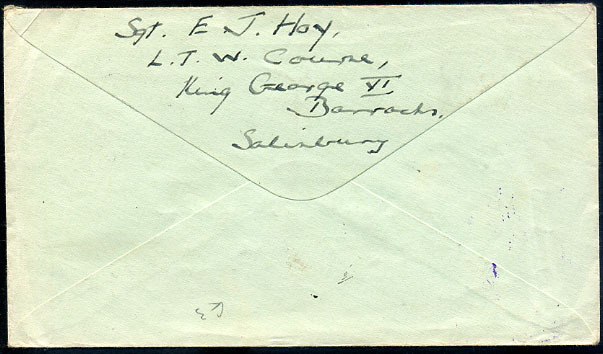 Sgt. E J. Hoy,
L.T.W. Course,
King George VI
Barracks.
Salisbury